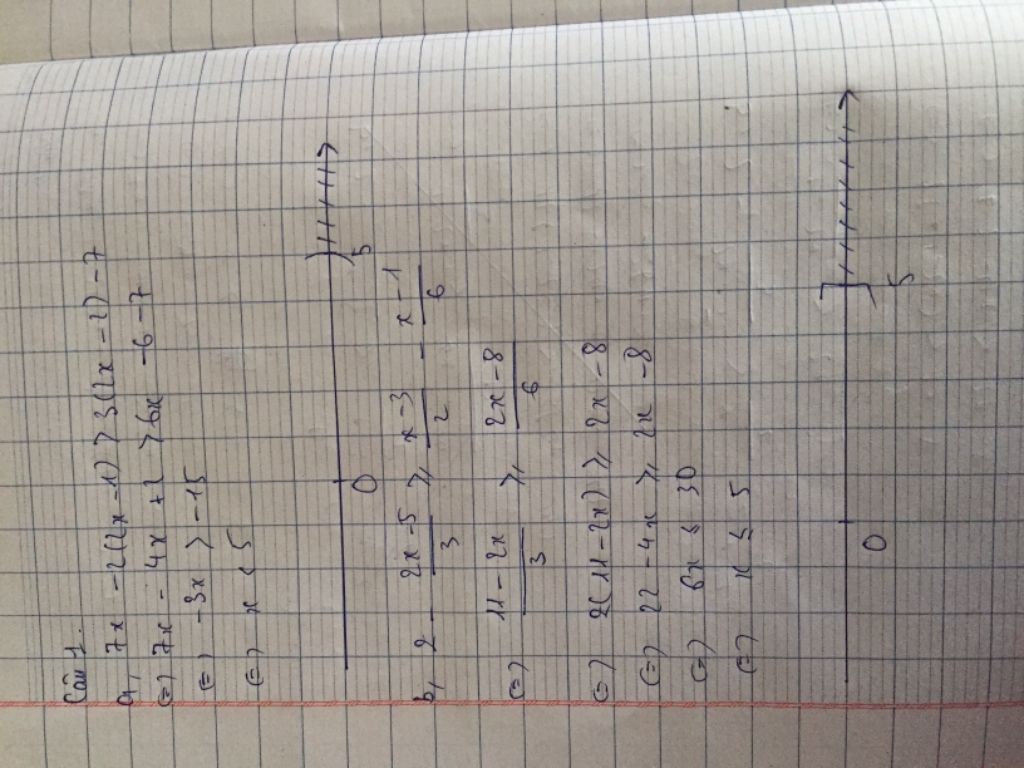 Câu 1.
a, 7x - 2(2x - 1) > 3(2x - 2) - 7
(=) 7x - 4x + 2 > 6x - 6 - 7
(=) -3x > -15
(=) x < 5
0 5
b, 2 - \frac{2x-5}{3} ≥ \frac{x-3}{2} - \frac{x-1}{6}
(=) \frac{11-2x}{3} ≥ \frac{2x-8}{6}
(=) 2(11 - 2x) ≥ 2x - 8
(=) 22 - 4x ≥ 2x - 8
(=) 6x ≤ 30
(=) x ≤ 5
0 5